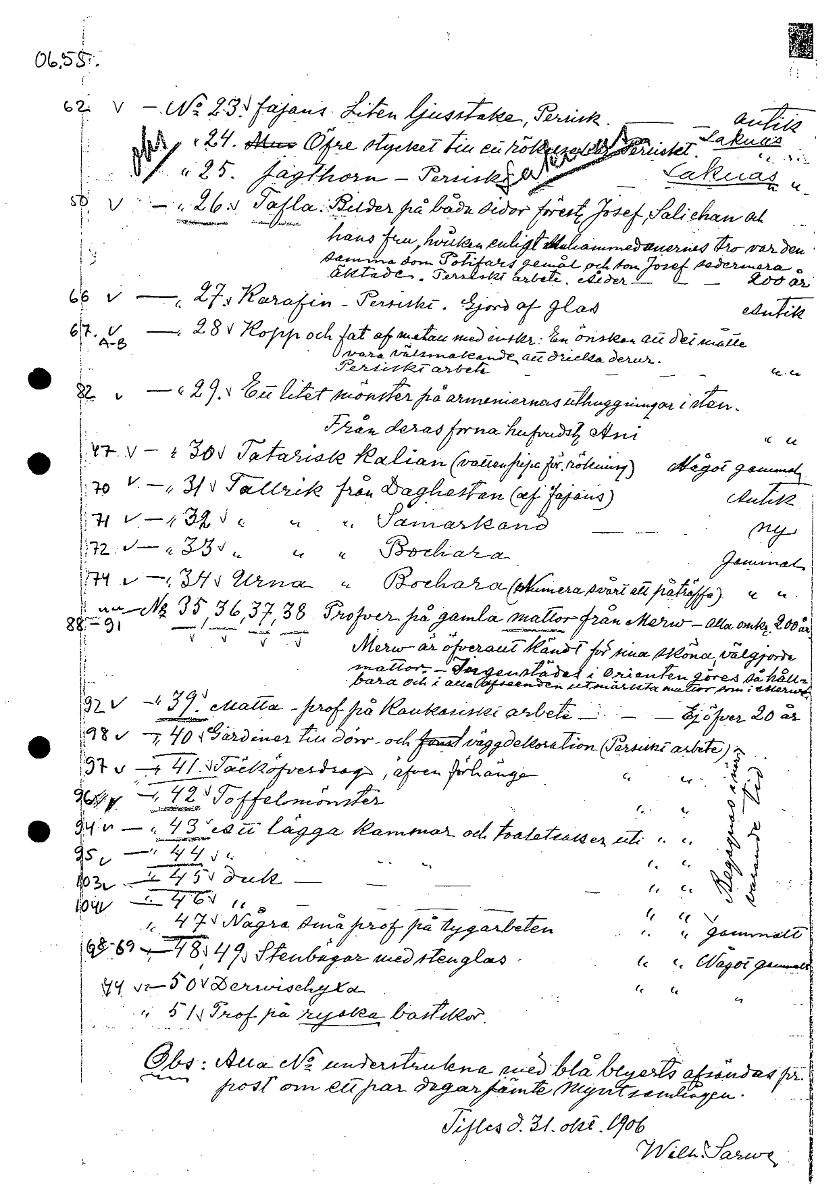 06.55.
62 v — No 23. v fajans. Liten ljusstake, Persisk. — — antik
obs " 24. Öfre stycket till en Persiskt. Saknas " "
" 25. Jagthorn — Persisk — Saknas " "
50 v — " 26. v Tafla. Bilder på båda sidor förest. Josef, Salichan och
hans fru, hvilken enligt Muhammedanernas tro var den
samma som Potifars gemål och som Josef sedermera
äktade. Persiskt arbete. Ålder — — — 200 år
66 v — " 27. v Karafin — Persisk. Gjord af glas Antik
67. v A-B — " 28 v Kopp och fat af metall med inskr.: En önskan att det måtte
vara välsmakande att dricka derur.
Persiskt arbete — — — " "
82 v — " 29. v Ett litet mönster på armeniernas uthuggningar i sten.
Från deras forna hufvudst. Ani " "
47 v — " 30 v Tatarisk Kalian (vattenpipa för rökning) Något gammal
70 v — " 31 v Tallrik från Daghestan (af fajans) Antik
71 v — " 32 v " " " Samarkand — — ny
72 v — " 33 v " " " Bochara gammal
74 v — " 34 v Urna " Bochara (Numera svårt att påträffa) " "
88-91 — No 35, 36, 37, 38 Profver på gamla mattor från Merw — alla omkr. 200 år
v v v v
Merw är öfverallt kändt för sina sköna, välgjorda
mattor — Ingenstädes i orienten göres så håll-
bara och i alla afseenden utmärkta mattor som i Merw.
92 v — " 39. Matta — prof på Kaukasiskt arbete — — — Ej öfver 20 år
98 v — " 40 v Gardiner till dörr- och väggdekoration (Persiskt arbete)
97 v — " 41. v Täcköfverdrag, äfven förhänge " "
96 v — " 42 v Toffelmönster " "
94 v — " 43 v att lägga kammar och toaletsaker uti " "
95 v — " 44 v " " " " "
103 v — " 45 v Duk — — — — " "
104 v — " 46 v " " "
Begagnas i nu varande tid.
" 47 v Några små prof på tygarbeten " " gammalt
68-69 — " 48 v, 49 v Stenbägar med stenglas " " Något gammalt
44 v — " 50 v Derwischyxa " " "
" 51 v Prof på ryska bastskor.
Obs: Alla No understrukna med blå blyerts afsändas pr.
post om ett par dagar jämte myntsamlingen.
Tiflis d. 31. okt. 1906
Wilh. Sarwe